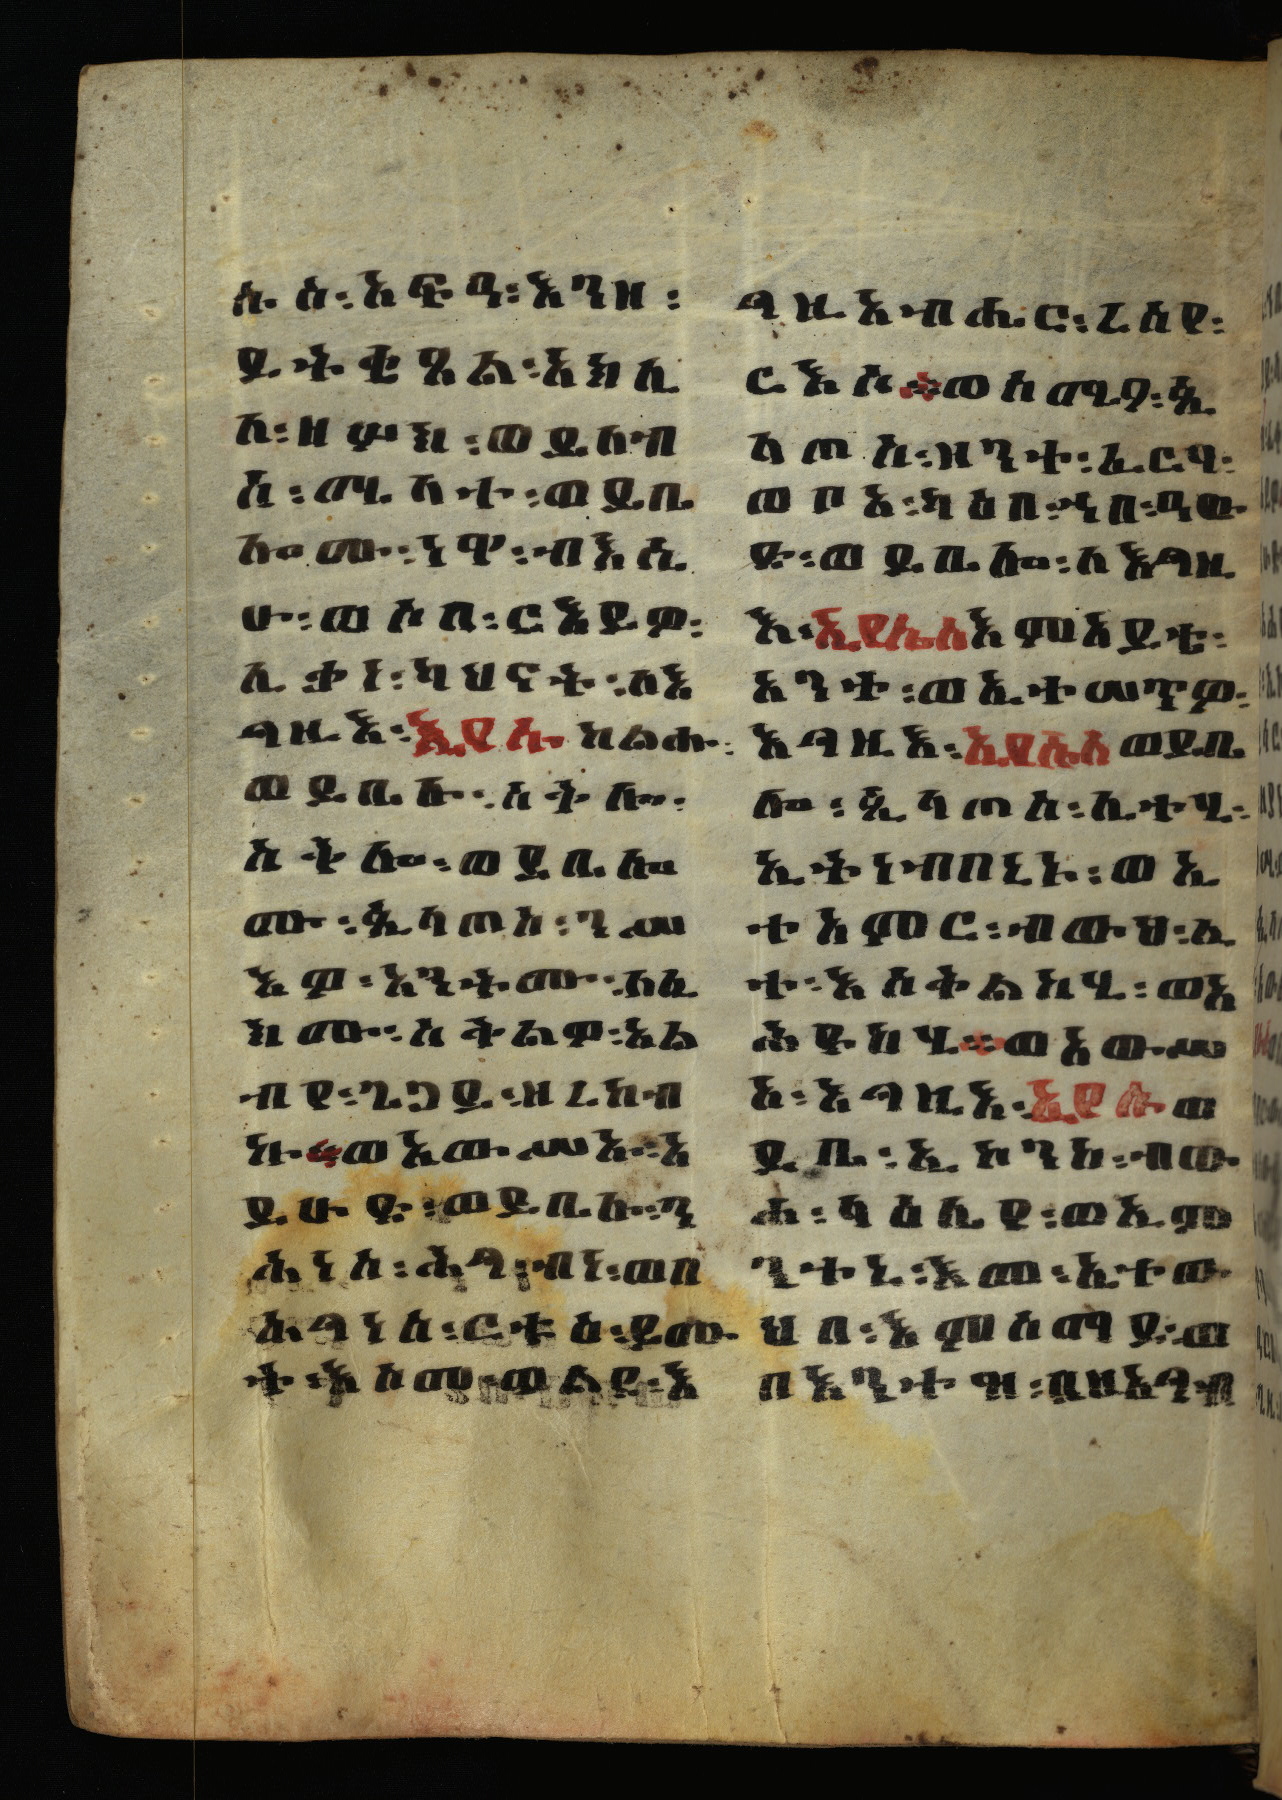 ሱ ስ፡አፍዓ፡እንዘ፡
ይትቄጸል፡አክሊ
ለ፡ዘሦክ፡ወይለብ
ስ፡ሜላት፡ወይቤ
ሎሙ፡ነዋ፡ብእሲ
ሁ፡ወሶበ፡ርእይዎ፡
ሊቃነ፡ካህናት፡ለእ
ግዚእ፡ኢየሱስ ከልሑ፡
ወይቤሉ፡ስቅሎ፡
ስቅሎ፡ወይቤሎ
ሙ፡ጲላጦስ፡ንሥ
እዎ፡አንትሙ፡ለሊ
ክሙ፡ስቅልዎ፡እል
ብየ፡ጌጋይ፡ዘረከብ
ኩ፡ወአውሥኡ፡አ
ይሁድ፡ወይቤሉ፡ን
ሕነስ፡ሕግ፡ብነ፡ወበ
ሕግነሰ፡ርቱዕ፡ይሙ
ት፡እስመ፡ወልደ፡እ
ግዚአብሔር፡ረሰየ፡
ርእሶ፡ወሰሚዖ፡ጲ
ላጦስ፡ዝንተ፡ፈርሃ፡
ወቦአ፡ካዕበ፡ኀበ፡ዓው
ድ፡ወይቤሎ፡ለእግዚ
እ፡ኢየሱስ እምአይቴ፡
አንተ፡ወኢተመጥዎ፡
እግዚእ፡ኢየሱስ ወይቤ
ሎ፡ጲላጦስ፡ሊተሂ፡
ኢትነብበኒኑ፡ወኢ
ተአምር፡ብውህ፡ሊ
ተ፡እስቅልከሂ፡ወእ
ሕድክሂ፡ወአውሥ
አ፡እግዚእ፡ኢየሱስ ወ
ይቤ፡ኢኮንከ፡ብው
ሐ፡ላዕሌየ፡ወኢም
ንተኒ፡እመ፡ኢተው
ህበ፡እምሰማይ፡ወ
በእንተዝ፡በዘአግብ